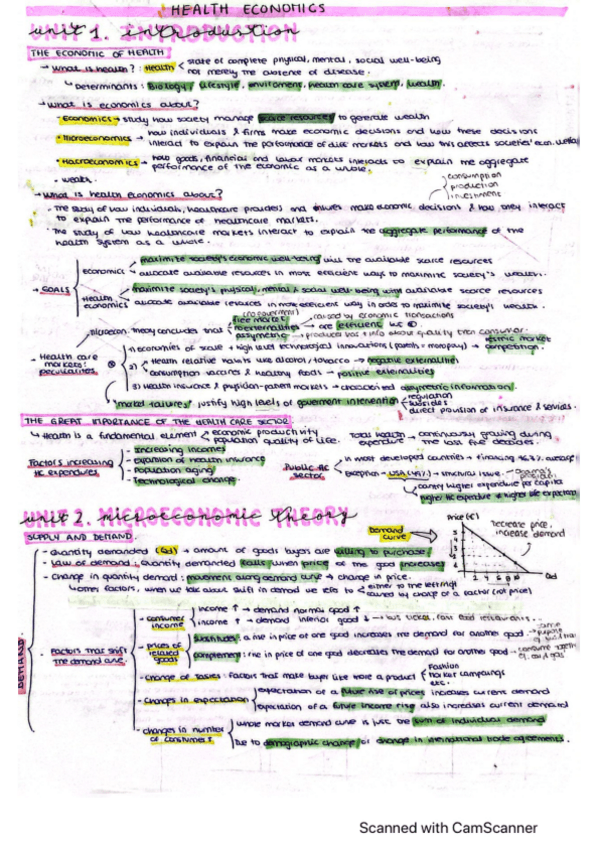 HEALTH ECONOMICS
unit 1. introduction
THE ECONOMIC OF HEALTH
What is health? : Health < state of complete physical, mental, social well-being
not merely the absence of disease.
Determinants: Biology, lifestyle, enviroment, health care system, wealth.
What is economics about?
- Economics → study how society manage scarce resources to generate wealth
- Microeconomics → how individuals & firms make economic decisions and how these decisions
interact to explain the performance of diff markets and how this affects societies' econ.
- Macroeconomics → how goods, financial and labour markets interacts to explain the aggregate
performance of the economic as a whole.
consumption
production
investment
What is health economics about?
- The study of how individuals, healthcare providers and make economic decisions & how they interact
to explain the performance of healthcare markets.
- The study of how healthcare markets interact to explain the aggregate performance of the
health system as a whole.
GOALS
Economics
maximize society's economic well-being with the available scarce resources
allocate available resources in most efficient ways to maximize society's wealth.
Health economics
maximize society's physical, mental & social well-being with available scarce resources
allocate available resources in most efficient way in order to maximize society's wealth.
Microecon. theory concludes that
free market
no externalities → caused by economic transactions
are efficient
- Health care markets: peculiarities
1) economies of scale + high level technological innovations (patents = monopoly) → restric market competition.
2) Health relative habits like alcohol / tobacco → negative externalities
consumption vaccines & healthy foods → positive externalities
3) Health insurance & physician-patient markets → characterized asymetric information
"market failures" justify high levels of goverment intervention
regulation
subsides
direct provision of insurance & services.
THE GREAT IMPORTANCE OF THE HEALTH CARE SECTOR
Health is a fundamental element < economic productivity
population quality of life.
Total health expenditure → continuously growing during
the last five decades.
Factors increasing HC expenditures
- Increasing incomes
- expansion of health insurance
- Population aging
- Technological change
Public HC sector
in most developed countries → financing
exception - USA
country higher expenditure per capita
higher HC expenditure ≠ higher life expectancy
unit 2. MICROECONOMIC THEORY
SUPPLY AND DEMAND
- Quantity demanded (Qd) → amount of goods buyers are willing to purchase
- Law of demand: Quantity demanded falls when price of the good increases
- change in quantity demand: movement along demand curve → change in price.
other factors, when we talk about shift in demand we refer to < either to the left/right
caused by change of a factor (not price)
Demand curve
Price (€)
5
4
3
2
1
2 4 6 8 10
Qd
decrease price,
increase demand
DEMAND
Factors that shift the demand curve
- consumer income
income ↑ → demand normal good ↑
income ↑ → demand inferior good ↓ → bus ticket, fast food restaurants..
- prices of related goods
substitutes: a rise in price of one good increases the demand for another good
complement: rise in price of one good decreases the demand for another good
- Change of tastes: factors that make buyer like more a product
Fashion
Market campaings
exc.
- Changes in expectation
expectation of a future rise of prices increases current demand
expectation of a future income rise also increases current demand
- changes in number of consumers
whole market demand curve is just the sum of individual demand
Due to demographic change / or change in international trade agreements.
Scanned with CamScanner